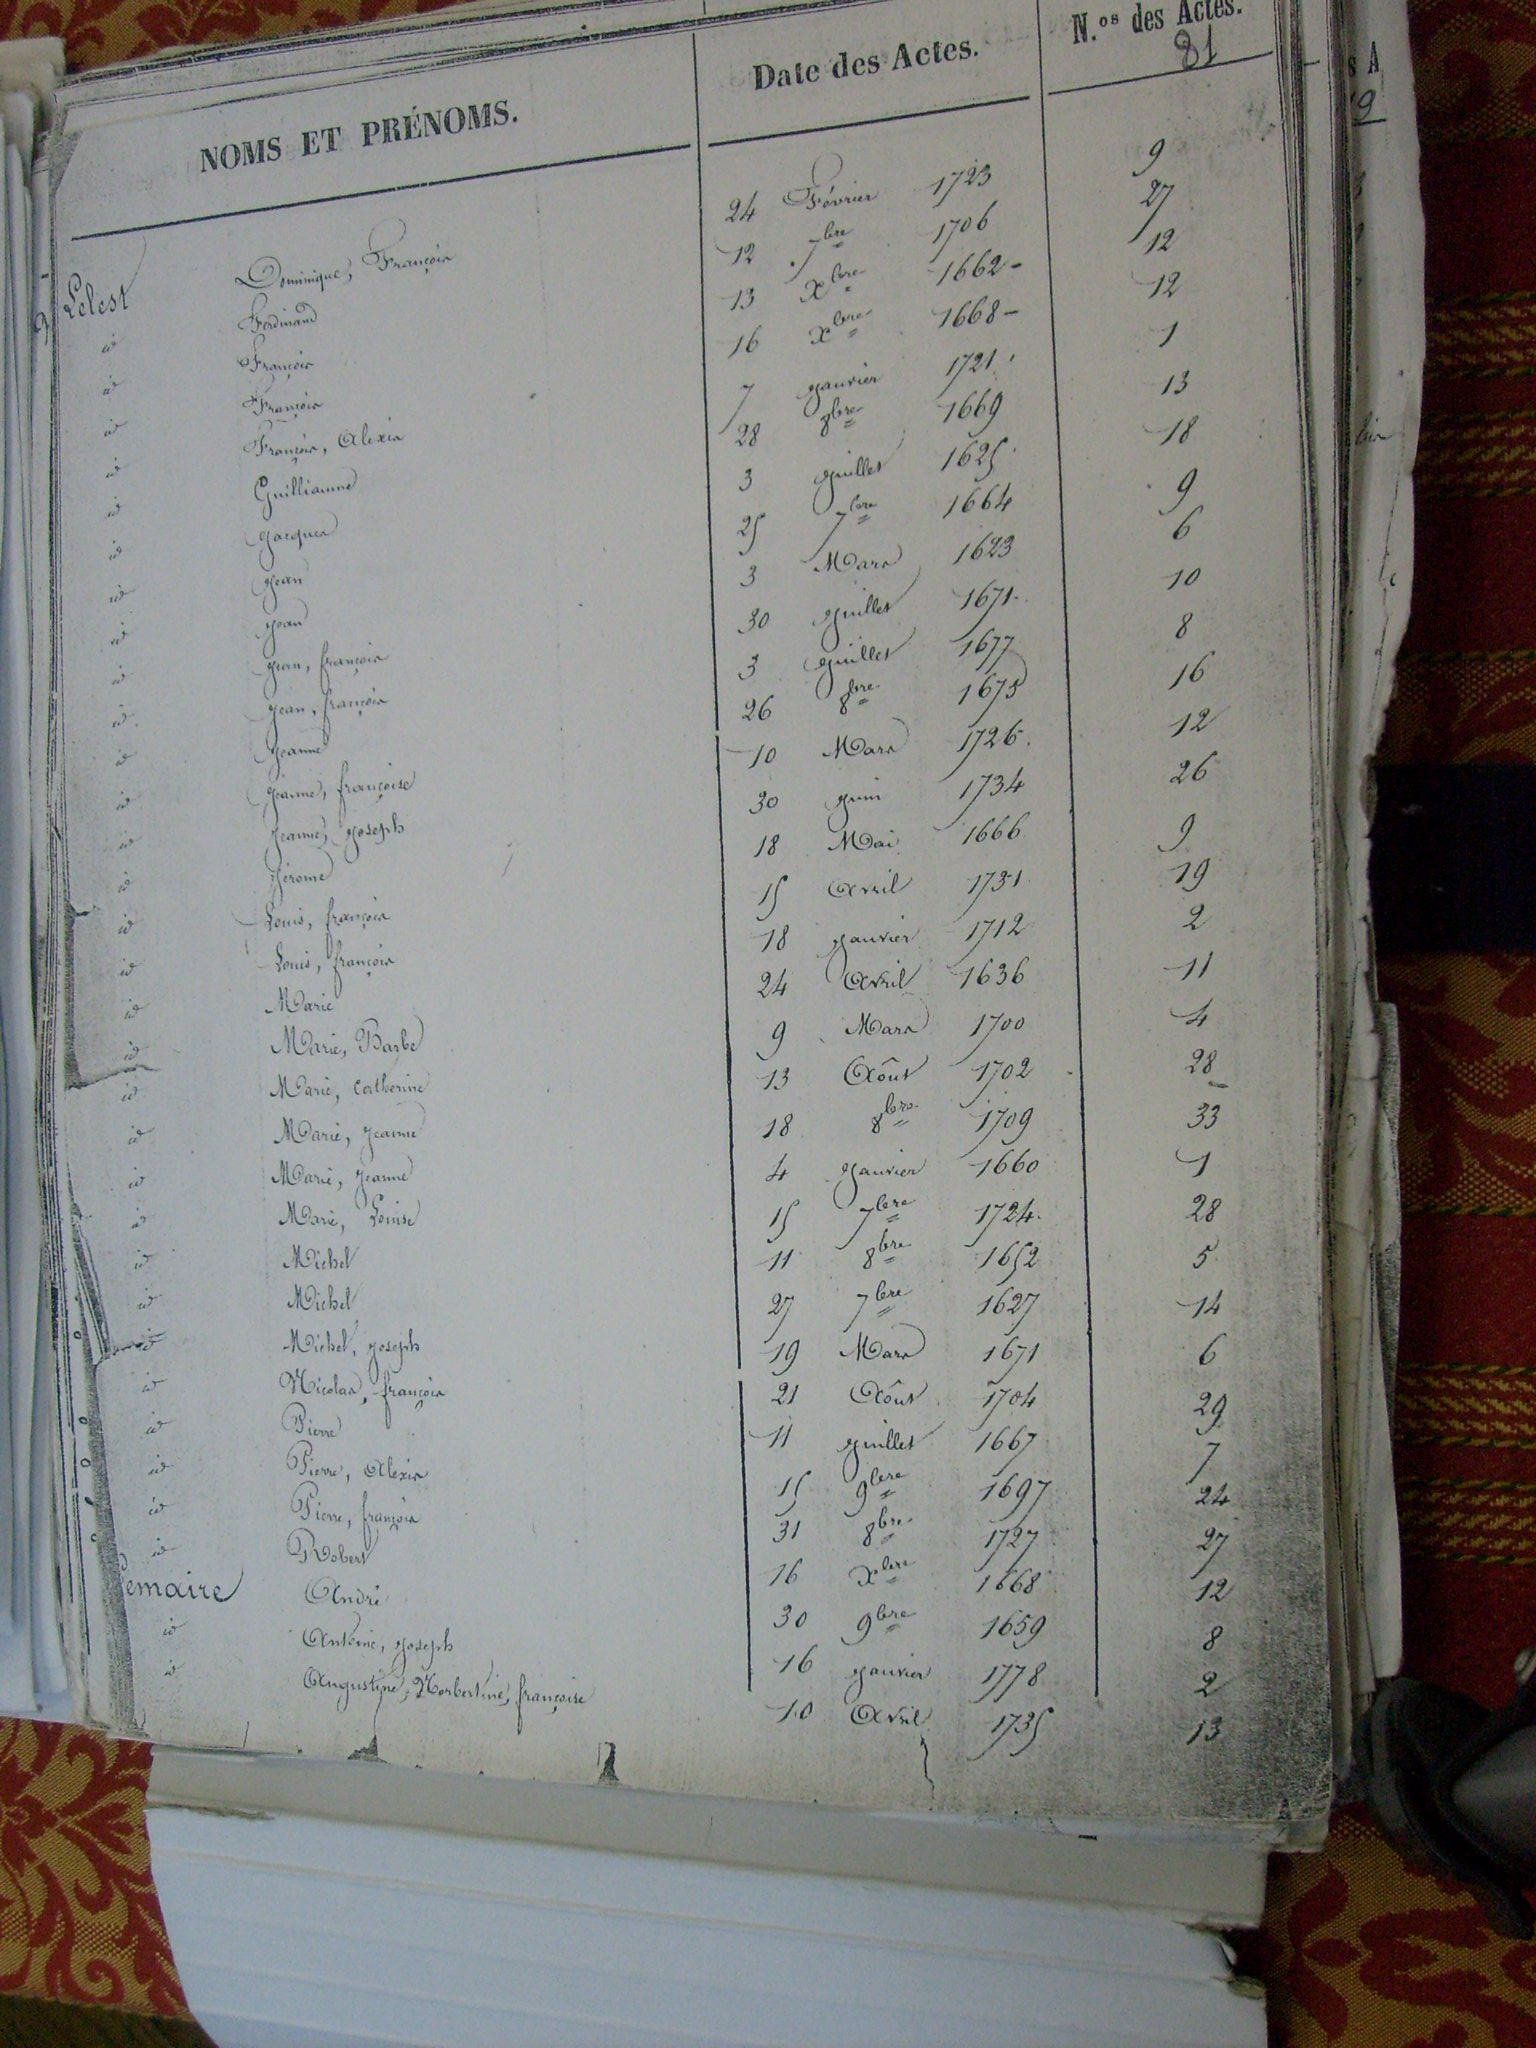 NOMS ET PRÉNOMS. Date des Actes. N.os des Actes.
81
Lelest Dominique, François 24 Février 1723 9
id Ferdinand 12 7bre 1706 27
id François 13 Xbre 1662 - 12
id François 16 Xbre 1668 - 12
id François, Alexis 7 Janvier 1721 1
id Guilliaume 28 8bre 1669 13
id Jacques 3 Juillet 1625 18
id Jean 25 7bre 1664 9
id Jean 3 Mars 1623 6
id Jean, françois 30 Juillet 1671 10
id Jean, françois 3 Juillet 1677 8
id Jeanne 26 8bre 1675 16
id Jeanne, françoise 10 Mars 1726 12
id Jeanne, Joseph 30 Juin 1734 26
id Jérome 18 Mai 1666 9
id Louis, françois 15 Avril 1731 19
id Louis, françois 18 Janvier 1712 2
id Marie 24 Avril 1636 11
id Marie, Barbe 9 Mars 1700 4
id Marie, Catherine 13 Aôut 1702 28
id Marie, Jeanne 18 8bre 1709 33
id Marie, Jeanne 4 Janvier 1660 1
id Marie, Louise 15 7bre 1724 28
id Michel 11 8bre 1652 5
id Michel 27 7bre 1627 14
id Michel, Joseph 19 Mars 1671 6
id Nicolas, françois 21 Aôut 1704 29
id Pierre 11 Juillet 1667 7
id Pierre, Alexis 15 9bre 1697 24
id Pierre, françois 31 8bre 1727 27
id Robert 16 Xbre 1668 12
emaire André 30 9bre 1659 8
id Antoine, Joseph 16 Janvier 1778 2
id Augustine, Norbertine, françoise 10 Avril 1735 13